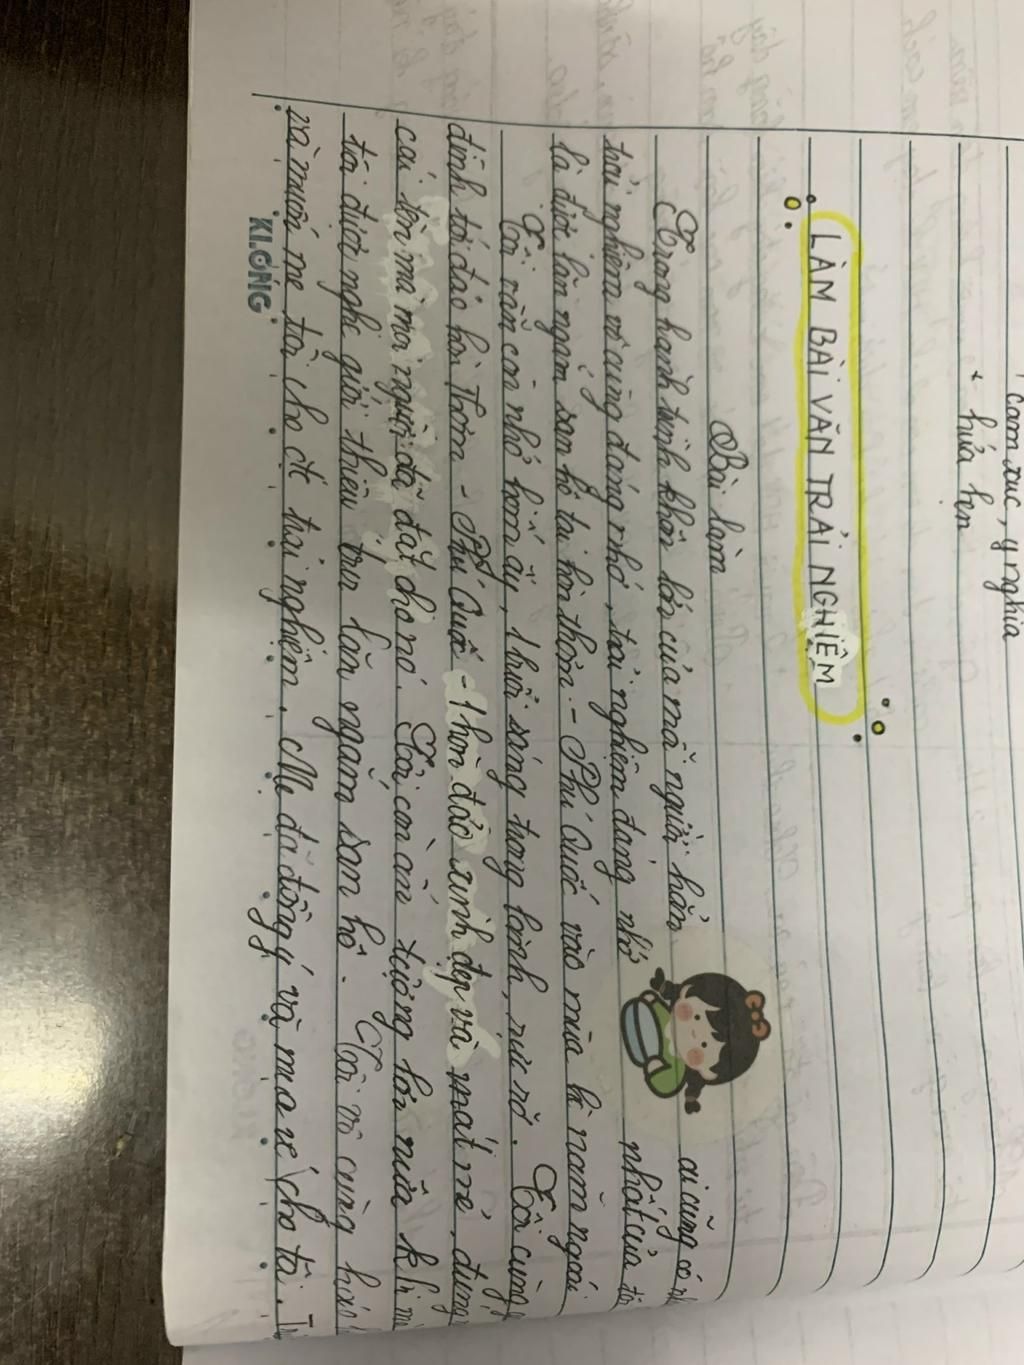 cảm xúc, ý nghĩa
+ hứa hẹn
LÀM BÀI VĂN TRẢI NGHIỆM
Bài làm
Trong hành trình khôn lớn của mỗi người hẳn ai cũng có
trải nghiệm vô cùng đáng nhớ, trải nghiệm đáng nhớ nhất của tôi
là được lặn ngắm san hô tại hòn thơm - Phú Quốc vào mùa hè năm ngoái
Tôi vẫn còn nhớ hôm ấy, 1 buổi sáng trong lành, rực rỡ. Tôi cùng
đình tới đảo hòn Thơm - Phú Quốc - 1 hòn đảo xinh đẹp và mát mẻ, đúng
cái tên mà mọi người đã đặt cho nó. Tôi còn ấn tượng hơn nữa khi
tôi được nghe giới thiệu trò lặn ngắm san hô. Tôi vô cùng háo
và muốn mẹ tôi cho đi trải nghiệm. Mẹ đã đồng ý và mua vé cho tôi.
KLONG